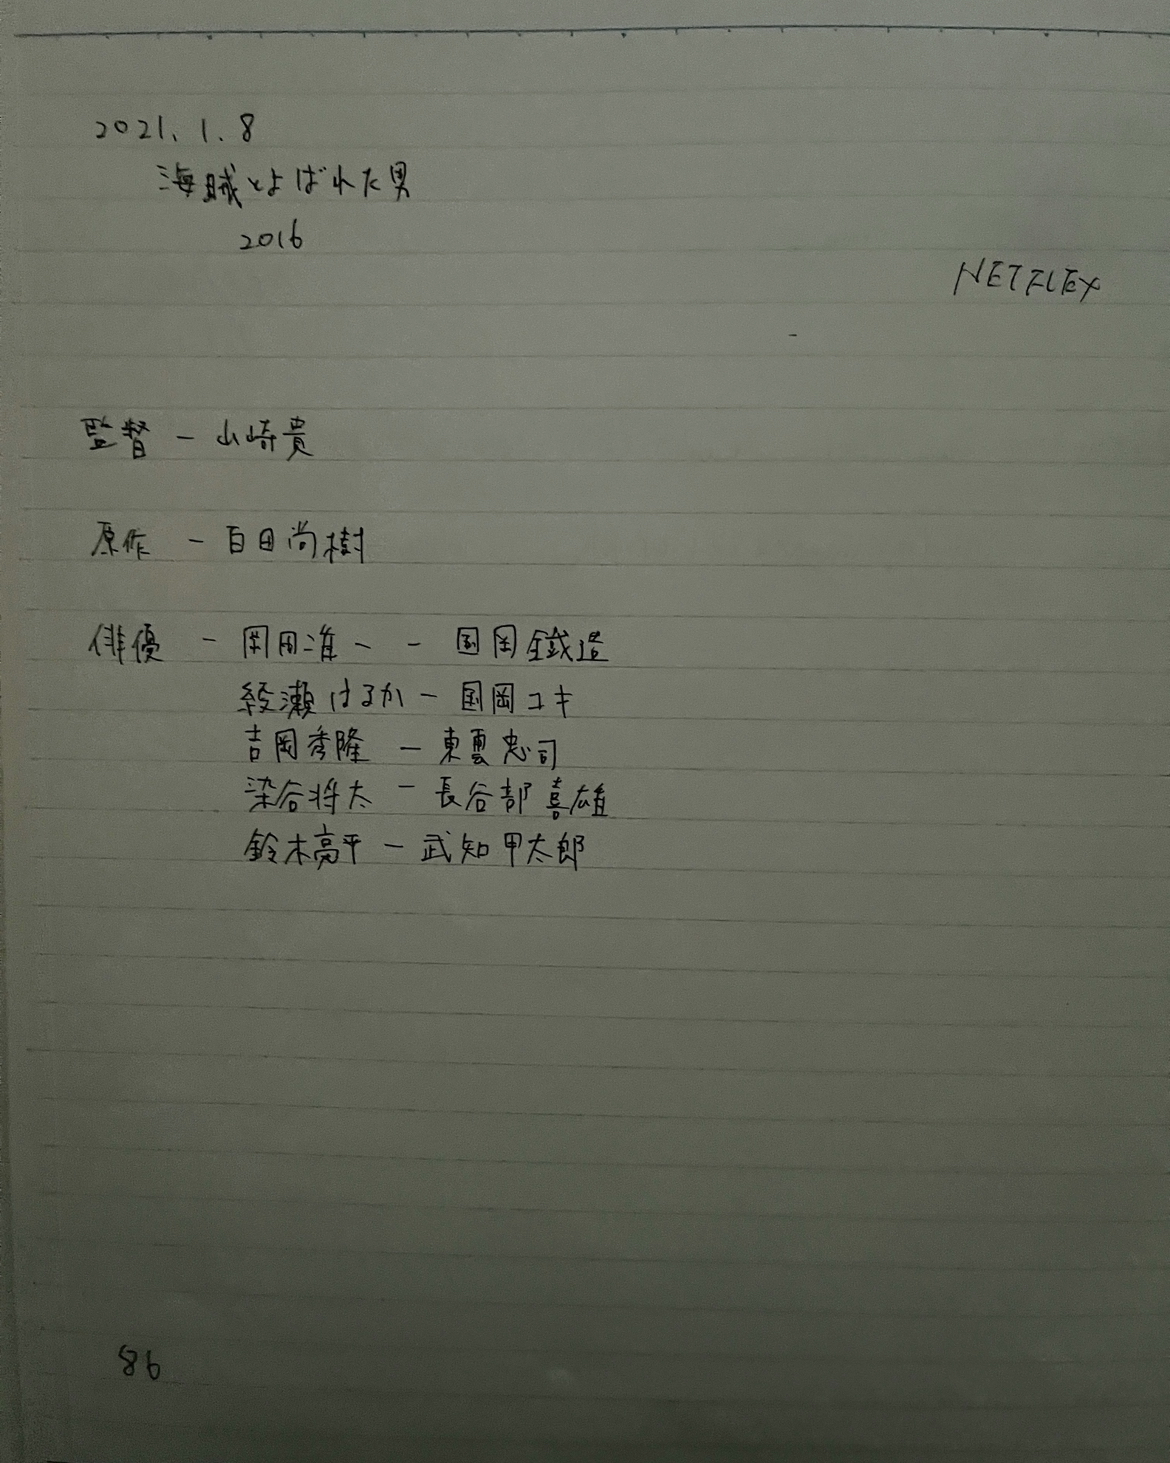 2021.1.8
海賊とよばれた男
2016
NETFLEX
監督 - 山崎貴
原作 - 百田尚樹
俳優 - 岡田准一 - 国岡鐵造
綾瀬はるか - 国岡ユキ
吉岡秀隆 - 東雲忠司
染谷将太 - 長谷部喜雄
鈴木亮平 - 武知甲太郎
86